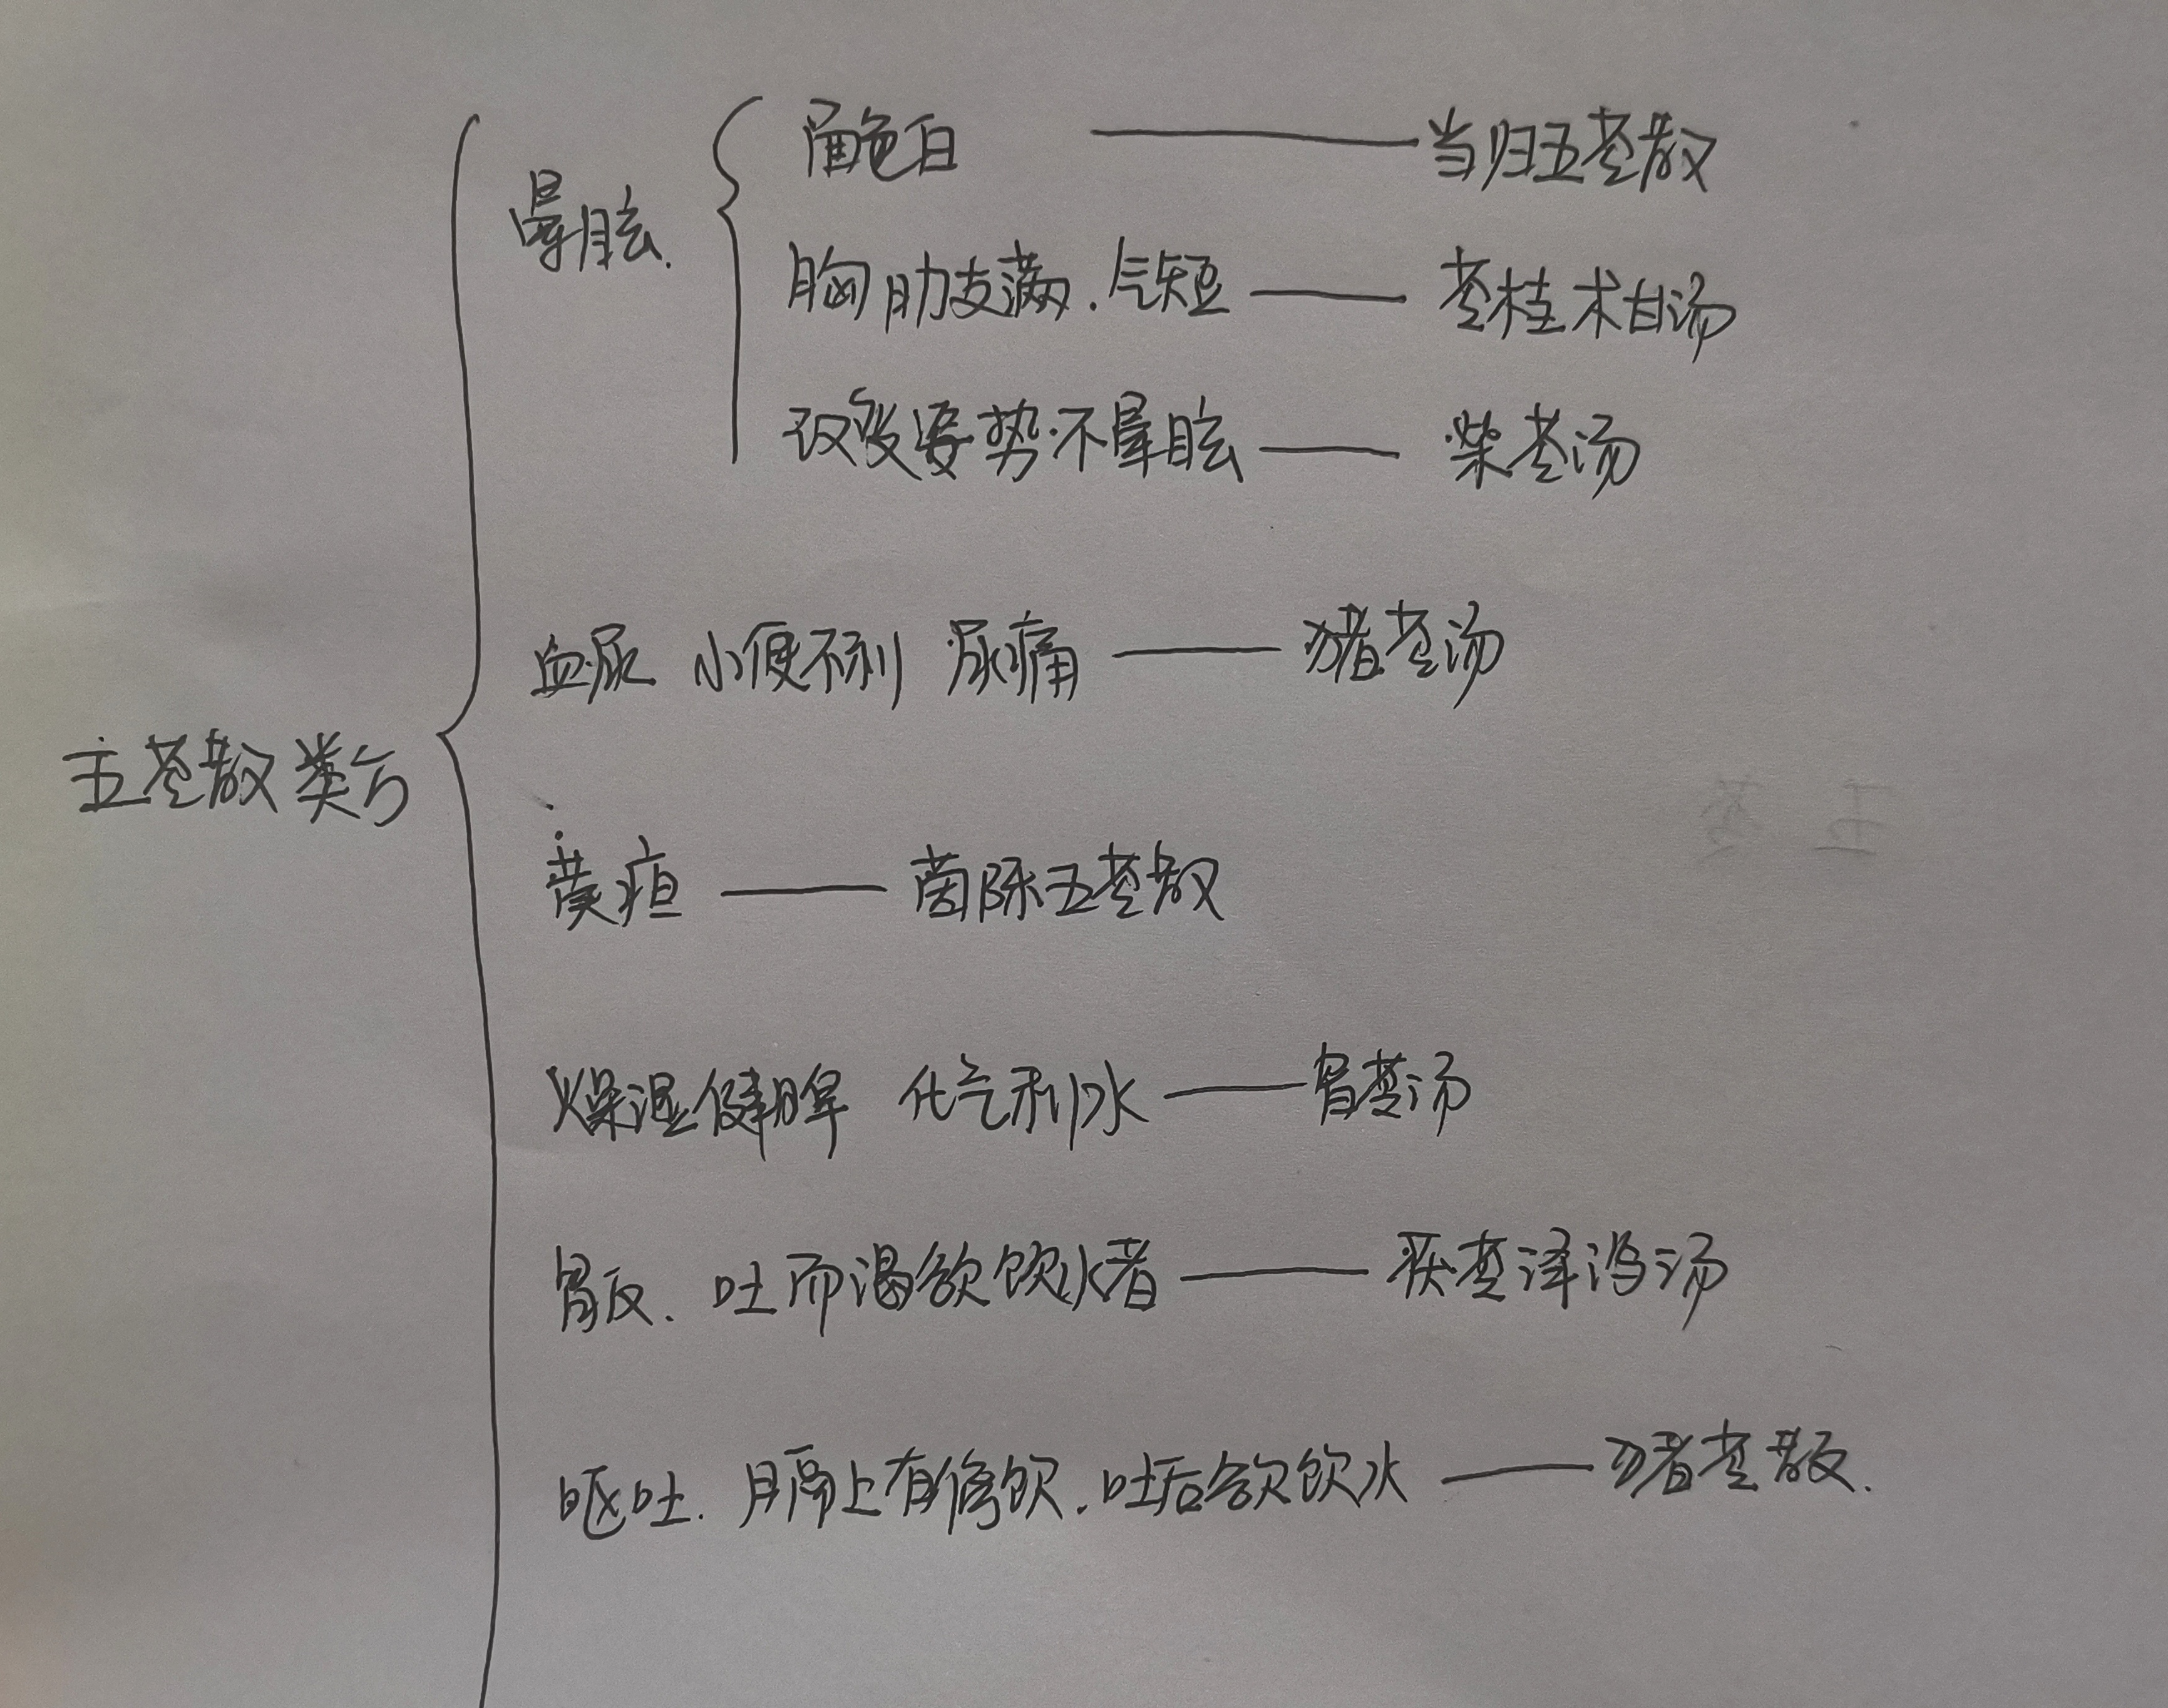 五苓散类方
晕眩.
面色白 —— 当归五苓散
胸胁支满.气短 —— 苓桂术甘汤
改变姿势不晕眩 —— 柴苓汤
血尿 小便不利 尿痛 —— 猪苓汤
黄疸 —— 茵陈五苓散
燥湿健脾 化气利水 —— 胃苓汤
胃反. 吐而渴欲饮水者 —— 茯苓泽泻汤
呕吐. 膈上有停饮.吐后欲饮水 —— 猪苓散.
五苓